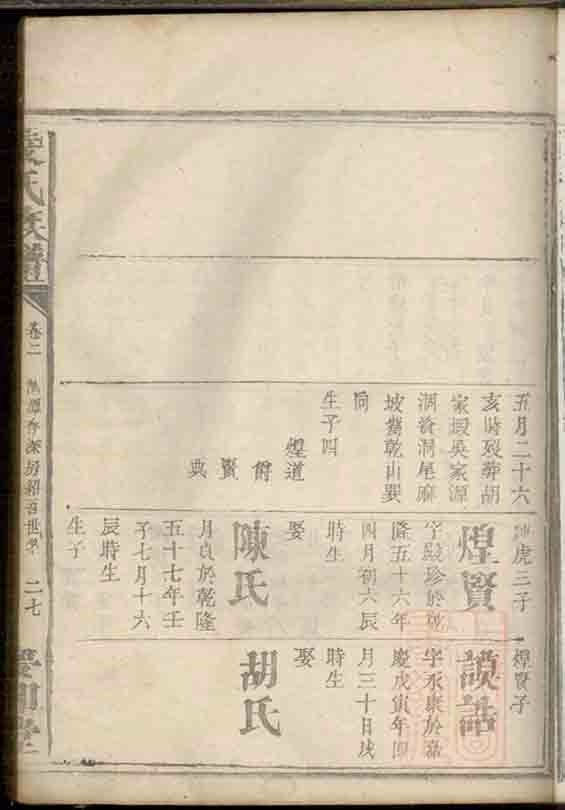 五月二十六
亥時歿葬胡
家塅吳家源
洞養洞尾麻
坡嘴乾山巽
向
生子四
煌道
爵
賢
典
虎三子
煌賢
於乾
隆五十六年
四月初六辰
時生
娶
陳氏
月貞於乾隆
五十七年壬
子七月十六
辰時生
生子
煌賢子
謨誥
字永康於嘉
慶戊寅年四
月三十日戌
時生
娶
胡氏
氏族譜
卷二
二七